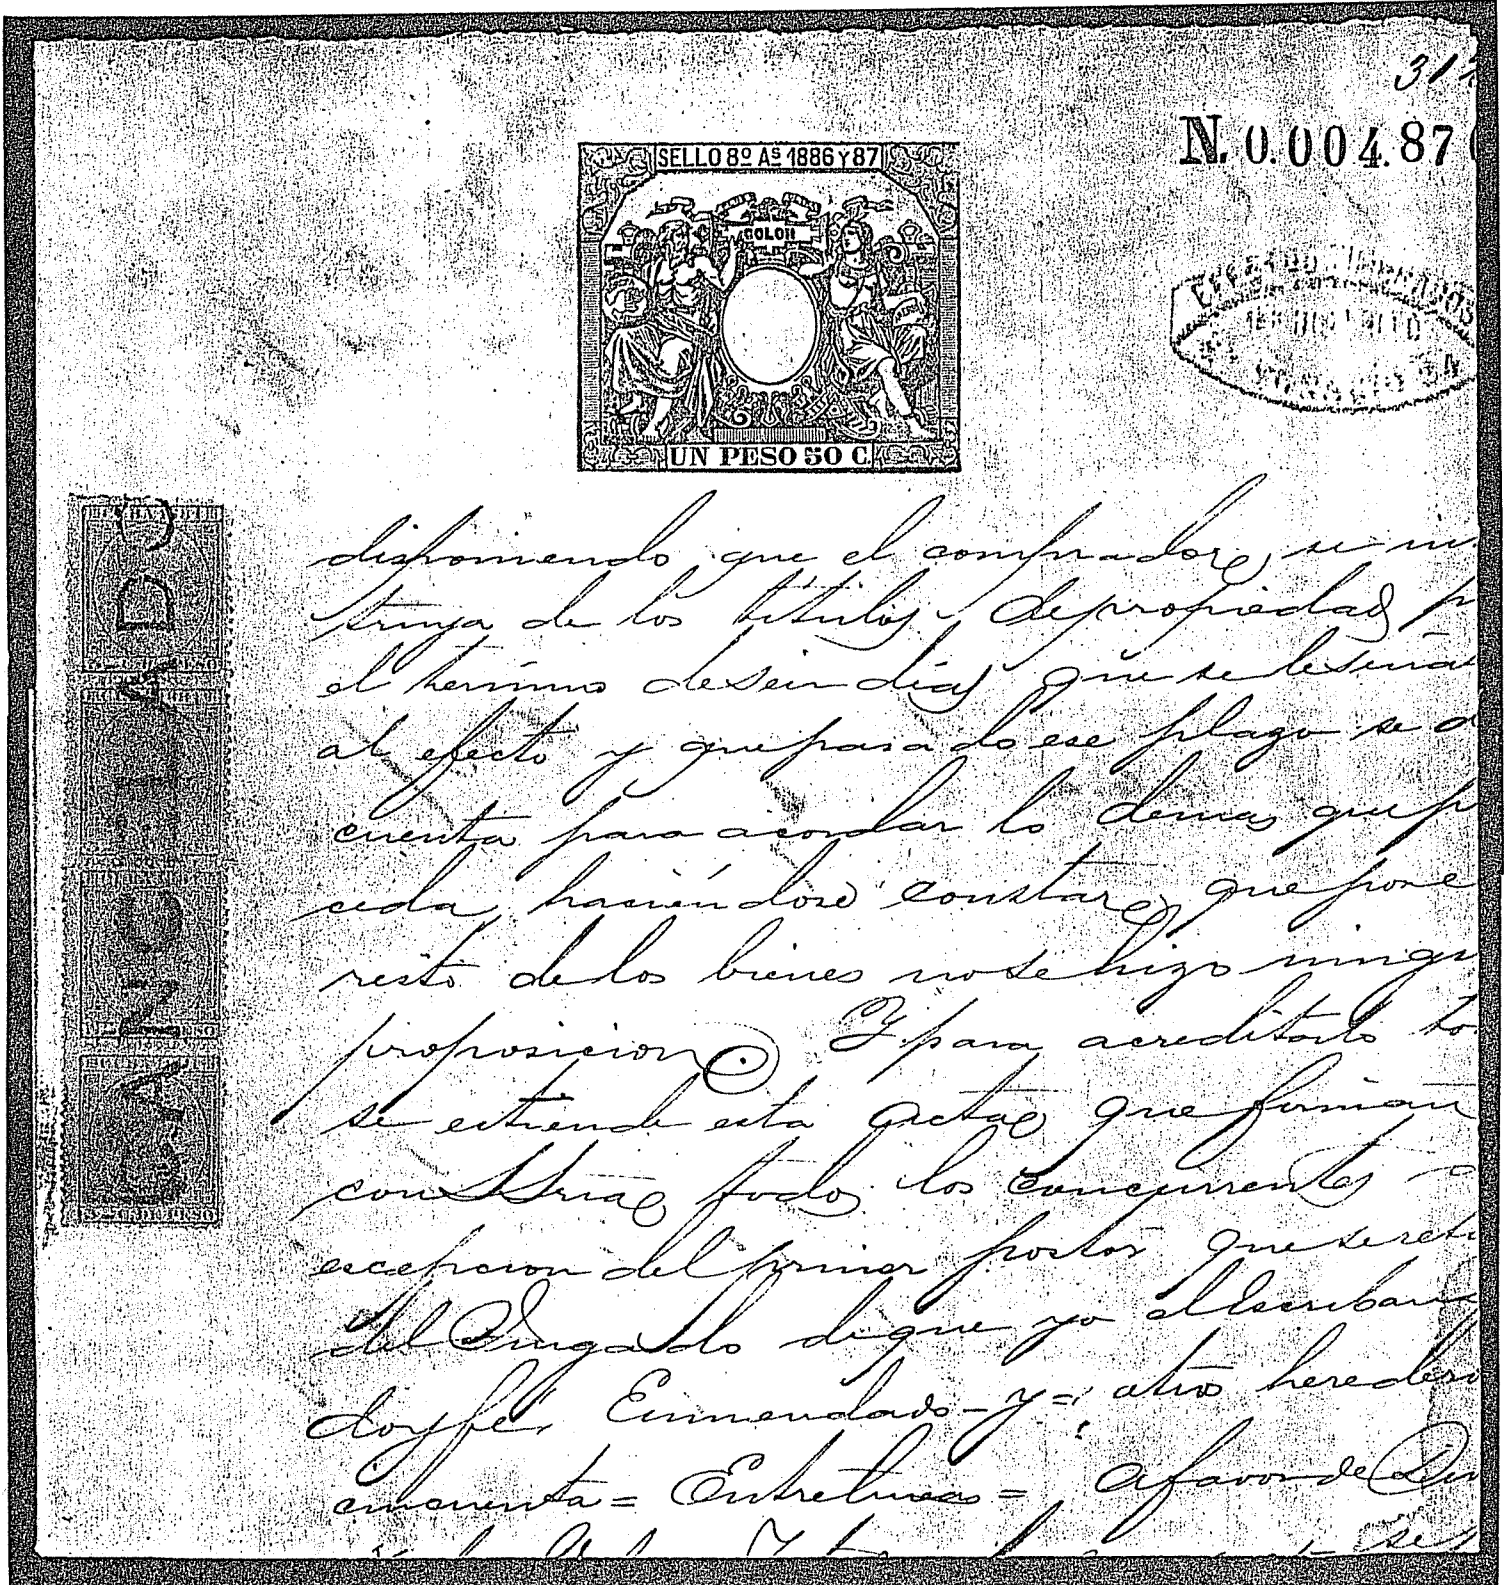 31
N. 0.004.87
SELLO 8º As 1886 Y 87
COLON
UN PESO 50 C.
CANCILADO
disponiendo que el comprador, se ins
truya de los titulos de propiedad p
el termino de seis dias que se le seña
al efecto y que pasado ese plazo se d
cuenta para acordar lo demas que p
ceda, haciéndose constar, que por e
resto de los bienes no se hizo ningu
proposicion. Y para acreditarlo to
se estiende esta acta que firman
con Sría todos los concurrentes
excepcion del primer postor que se reti
del Juzgado de que yo el Escribano
doy fé. Enmendado - y = otros heredero
cincuenta = Entrelineas = a favor de